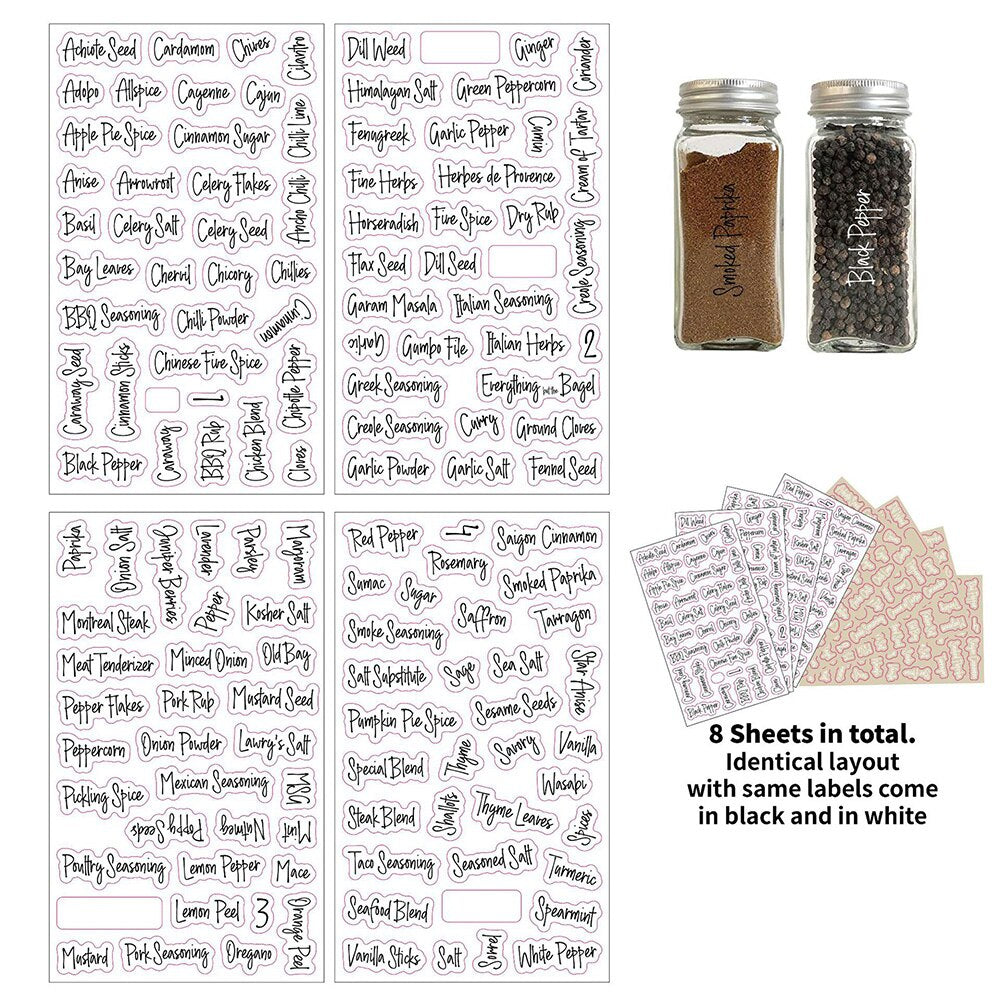 Achiote Seed Cardamom Chives Cilantro
Adobo Allspice Cayenne Cajun
Chilli Lime
Apple Pie Spice Cinnamon Sugar
Anise Arrowroot Celery Flakes
Ancho Chilli
Basil Celery Salt Celery Seed
Bay Leaves Chervil Chicory Chillies
BBQ Seasoning Chilli Powder Cinnamon
Caraway Seed Cinnamon Sticks Chinese Five Spice Chipotle Pepper
1
Black Pepper Caraway BBQ Rup Chicken Blend Cloves
Dill Weed Ginger Coriander
Himalayan Salt Green Peppercorn
Fenugreek Garlic Pepper Cumin Cream of Tartar
Fine Herbs Herbes de Provence
Horseradish Five Spice Dry Rub
Creole Seasoning
Flax Seed Dill Seed
Garam Masala Italian Seasoning
Garlic Gumbo File Italian Herbs 2
Greek Seasoning Everything but the Bagel
Creole Seasoning Curry Ground Cloves
Garlic Powder Garlic Salt Fennel Seed
Paprika Onion Salt Juniper Berries Lavender Parsley Marjoram
Montreal Steak Pepper Kosher Salt
Meat Tenderizer Minced Onion Old Bay
Pepper Flakes Pork Rub Mustard Seed
Peppercorn Onion Powder Lawry's Salt
Pickling Spice Mexican Seasoning MSG
Poppy Seeds Nutmeg Mint
Poultry Seasoning Lemon Pepper Mace
Lemon Peel 3 Orange Peel
Mustard Pork Seasoning Oregano
Red Pepper 4 Saigon Cinnamon
Rosemary
Sumac Sugar Smoked Paprika
Smoke Seasoning Saffron Tarragon
Salt Substitute Sage Sea Salt Star Anise
Pumpkin Pie Spice Sesame Seeds
Special Blend Thyme Savory Vanilla
Wasabi
Steak Blend Shallots Thyme Leaves Spices
Taco Seasoning Seasoned Salt Turmeric
Seafood Blend Spearmint
Vanilla Sticks Salt Sorrel White Pepper
Smoked Paprika
Black Pepper
8 Sheets in total.
Identical layout
with same labels come
in black and in white